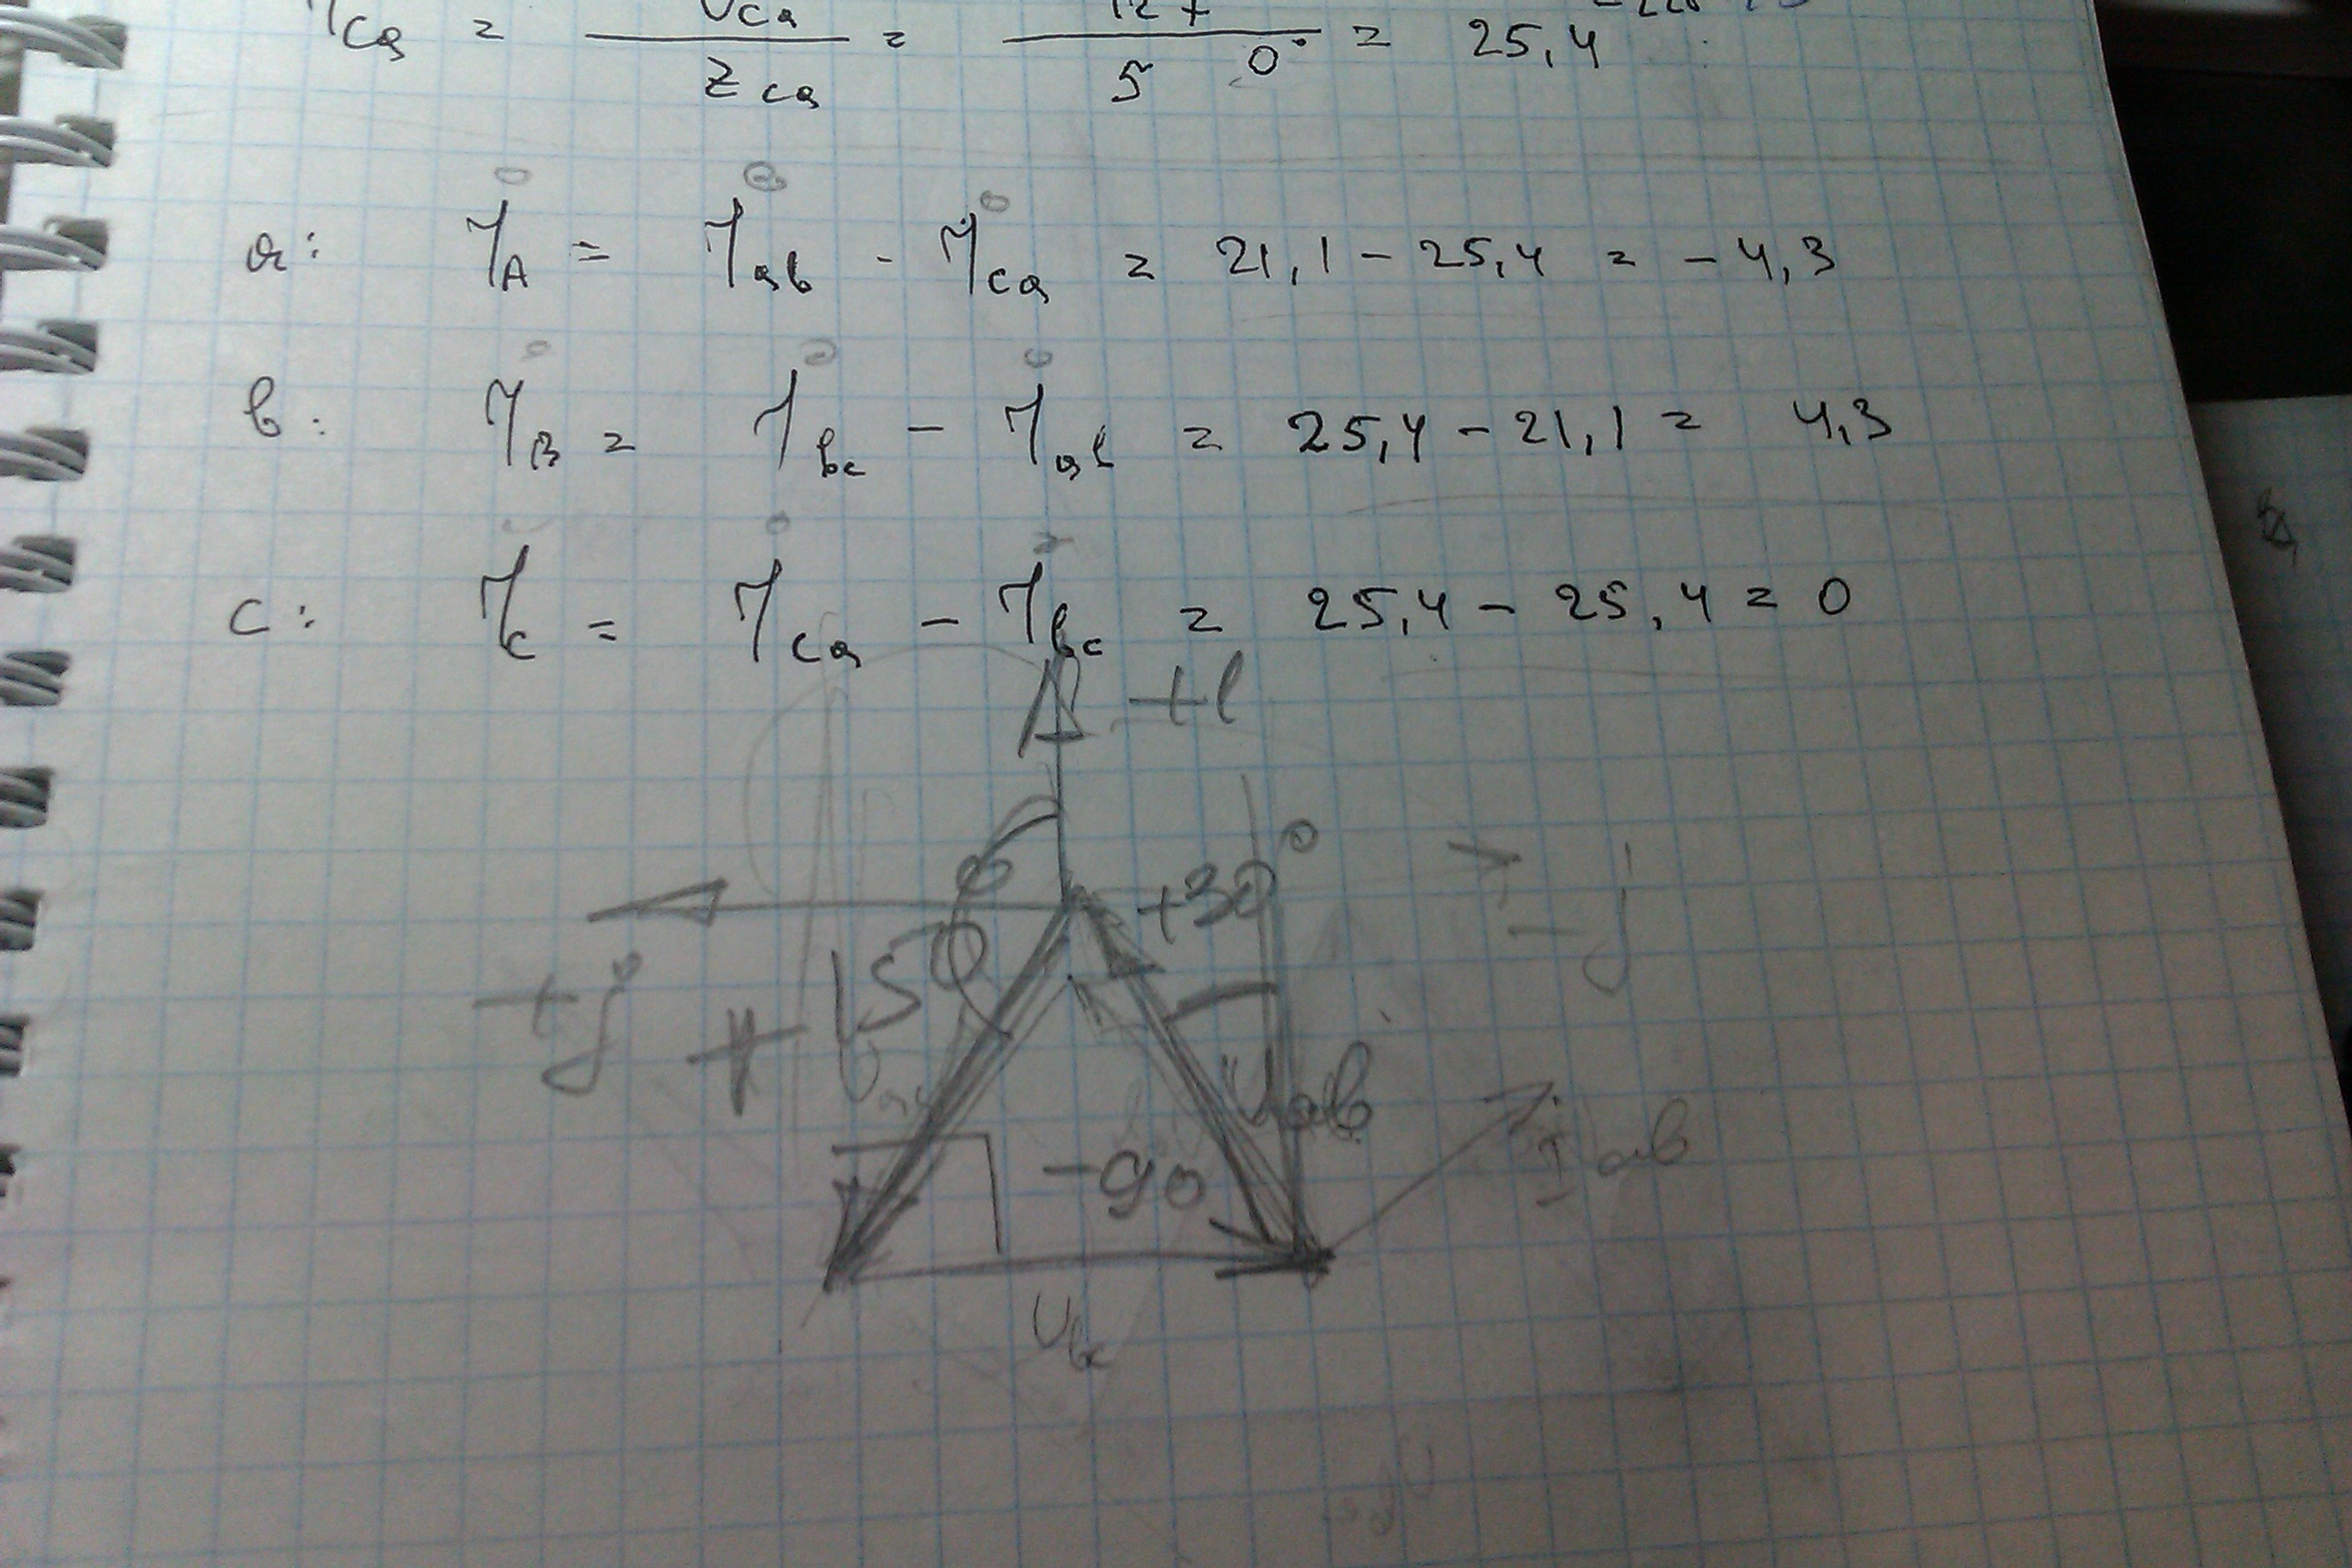 İca = Uca / Zca = 127 / 5 0° = 25,4
a: İA = İab - İca = 21,1 - 25,4 = -4,3
b: İB = İbc - İab = 25,4 - 21,1 = 4,3
c: İc = İca - İbc = 25,4 - 25,4 = 0
+1
+30°
-j
+j
+150°
Uab
Iab
-90
Ubc